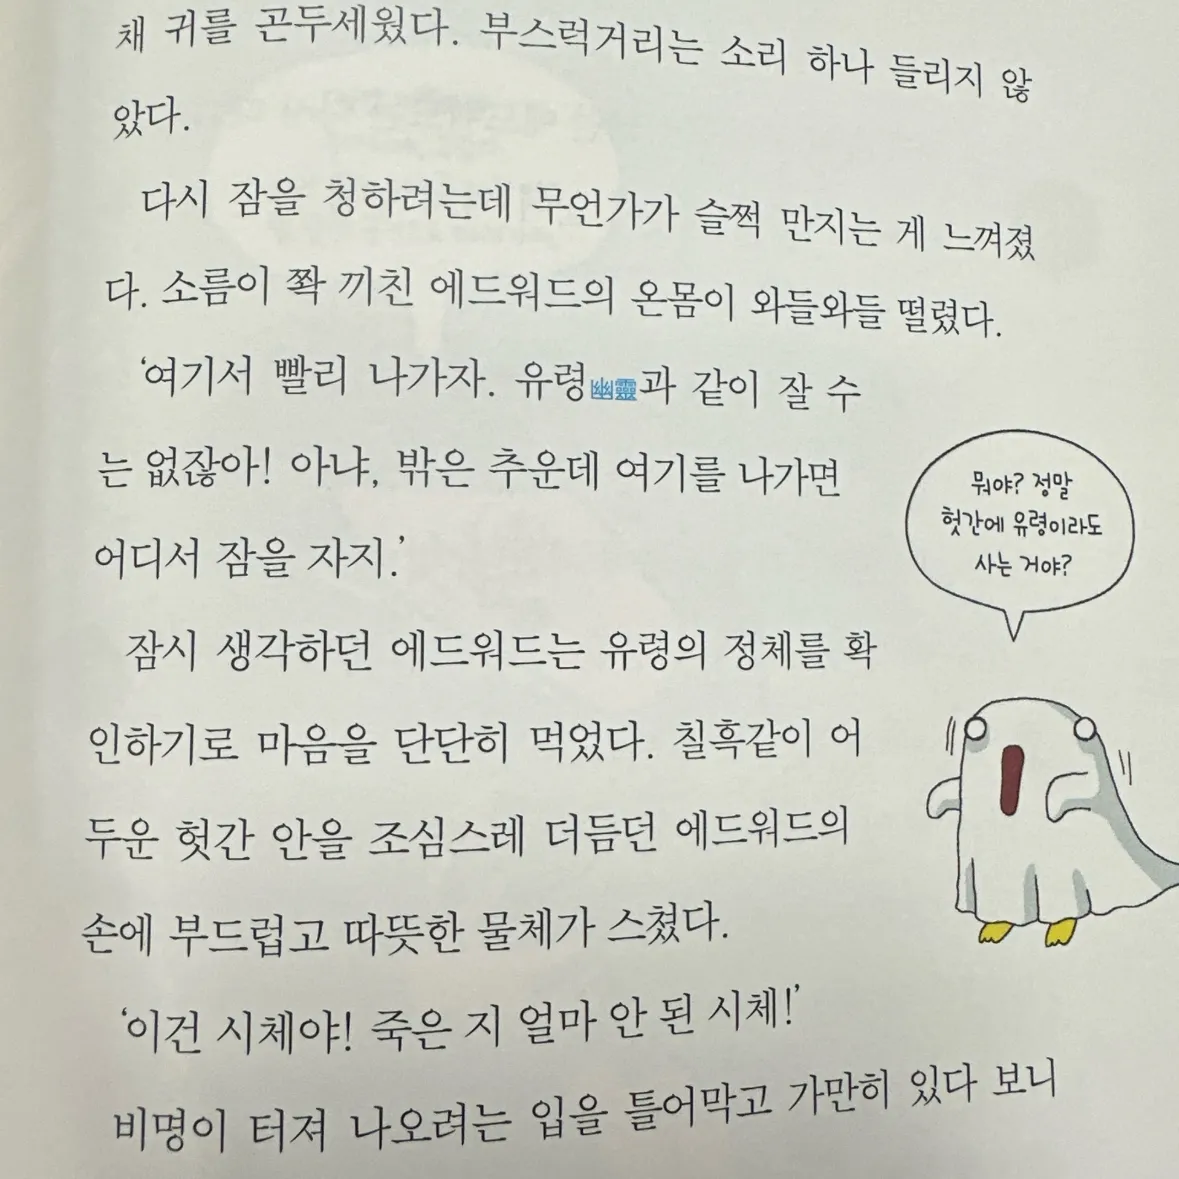 채 귀를 곤두세웠다. 부스럭거리는 소리 하나 들리지 않
았다.
다시 잠을 청하려는데 무언가가 슬쩍 만지는 게 느껴졌
다. 소름이 쫙 끼친 에드워드의 온몸이 와들와들 떨렸다.
‘여기서 빨리 나가자. 유령幽靈과 같이 잘 수
는 없잖아! 아냐, 밖은 추운데 여기를 나가면
어디서 잠을 자지.’
뭐야? 정말
헛간에 유령이라도
사는 거야?
잠시 생각하던 에드워드는 유령의 정체를 확
인하기로 마음을 단단히 먹었다. 칠흑같이 어
두운 헛간 안을 조심스레 더듬던 에드워드의
손에 부드럽고 따뜻한 물체가 스쳤다.
‘이건 시체야! 죽은 지 얼마 안 된 시체!’
비명이 터져 나오려는 입을 틀어막고 가만히 있다 보니